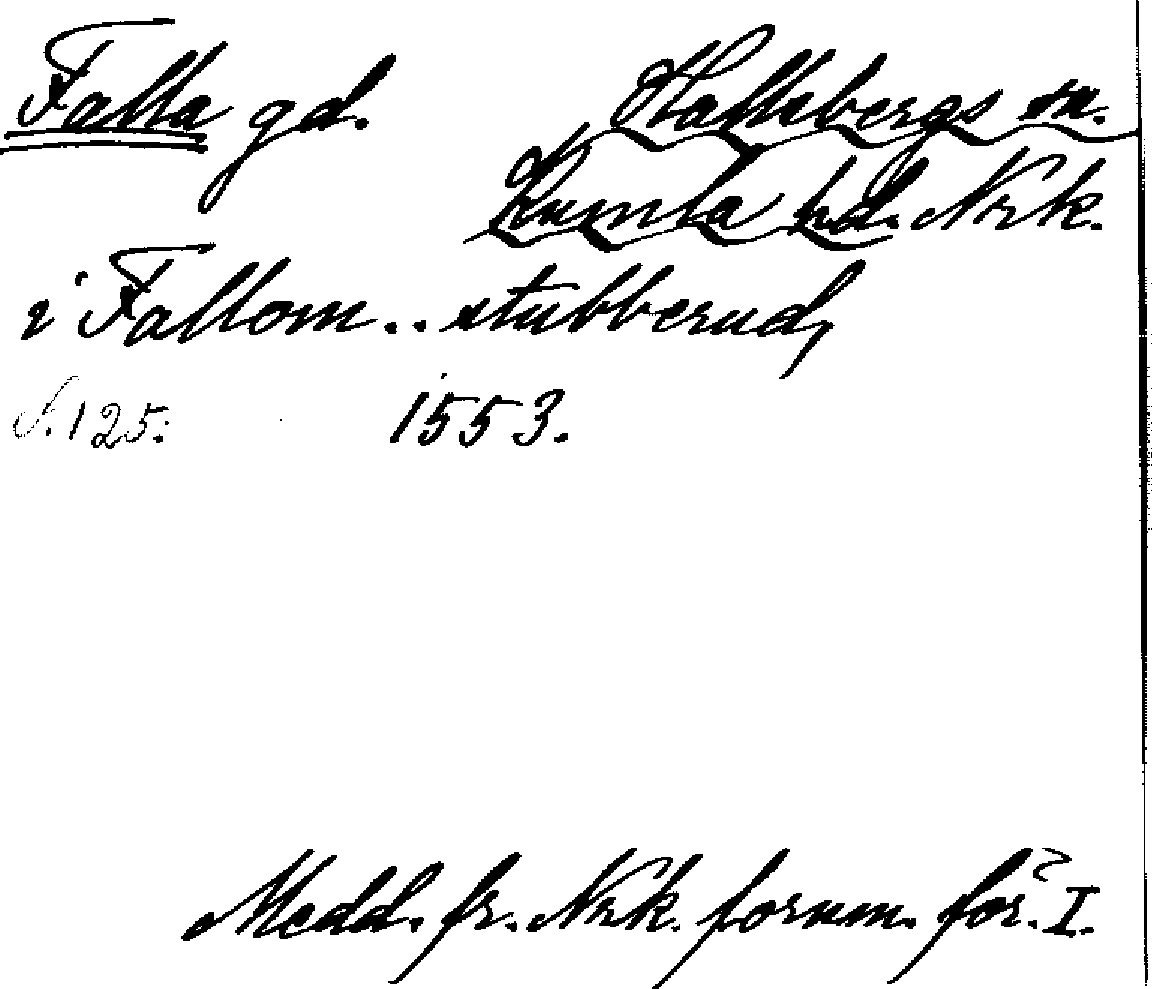 Falla gd. Hallsbergs sn.
Kumla hd. Nrk.
i Fallom .. stubberud,
S. 125. 1553.
Medd. fr. Nrk. fornm. för. I.